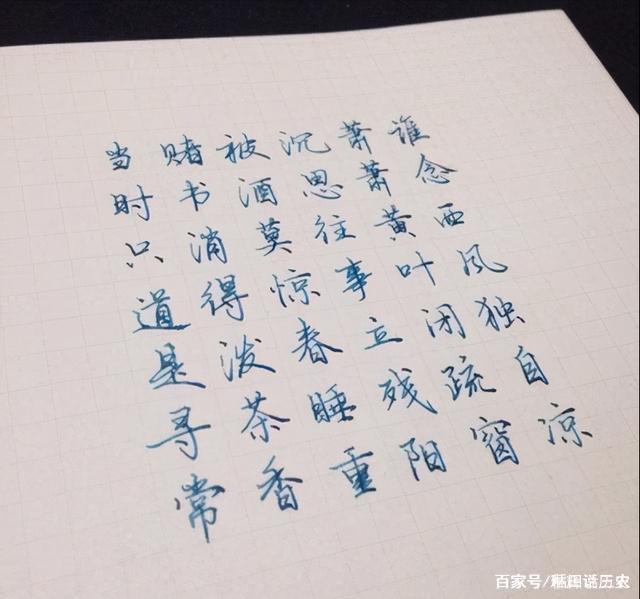 谁念西风独自凉
萧萧黄叶闭疏窗
沉思往事立残阳
被酒莫惊春睡重
赌书消得泼茶香
当时只道是寻常
百家号/